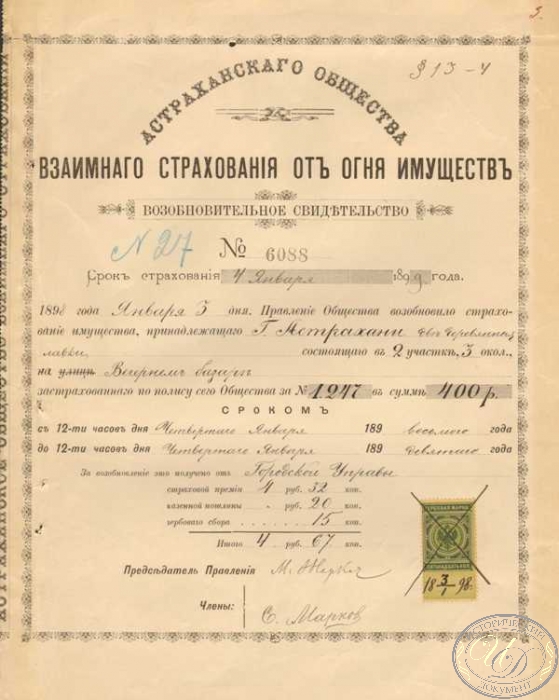 3.
§ 13 – 4
АСТРАХАНСКАГО ОБЩЕСТВА
ВЗАИМНАГО СТРАХОВАНІЯ ОТЪ ОГНЯ ИМУЩЕСТВЪ
ВОЗОБНОВИТЕЛЬНОЕ СВИДѢТЕЛЬСТВО
N 27 № 6088
Срокъ страхованія 4 Января 1899 года.
1898 года Января 3 дня. Правленіе Общества возобновило страхо-
ваніе имущества, принадлежащаго Г Астрахани двѣ деревянныя
лавки, состоящаго въ 2 участкѣ, 3 окол.,
на улицѣ Вечернемъ базарѣ
застрахованнаго по полису сего Общества за № 1247 въ суммѣ 400 р.
СРОКОМЪ
съ 12-ти часовъ дня Четвертаго Января 189 восьмого года
до 12-ти часовъ дня Четвертаго Января 189 девятаго года
За возобновленіе это получено отъ Городской Управы
страховой преміи 4 руб. 32 коп.
казенной пошлины „ руб. 20 коп.
гербоваго сбора 15 коп.
Итого 4 руб. 67 коп.
Предсѣдатель Правленія М.
Члены: С. Марковъ
ГЕРБОВАЯ МАРКА
18 3/1 98.
ИСТОРИЧЕСКИЙ ДОКУМЕНТ
ИД